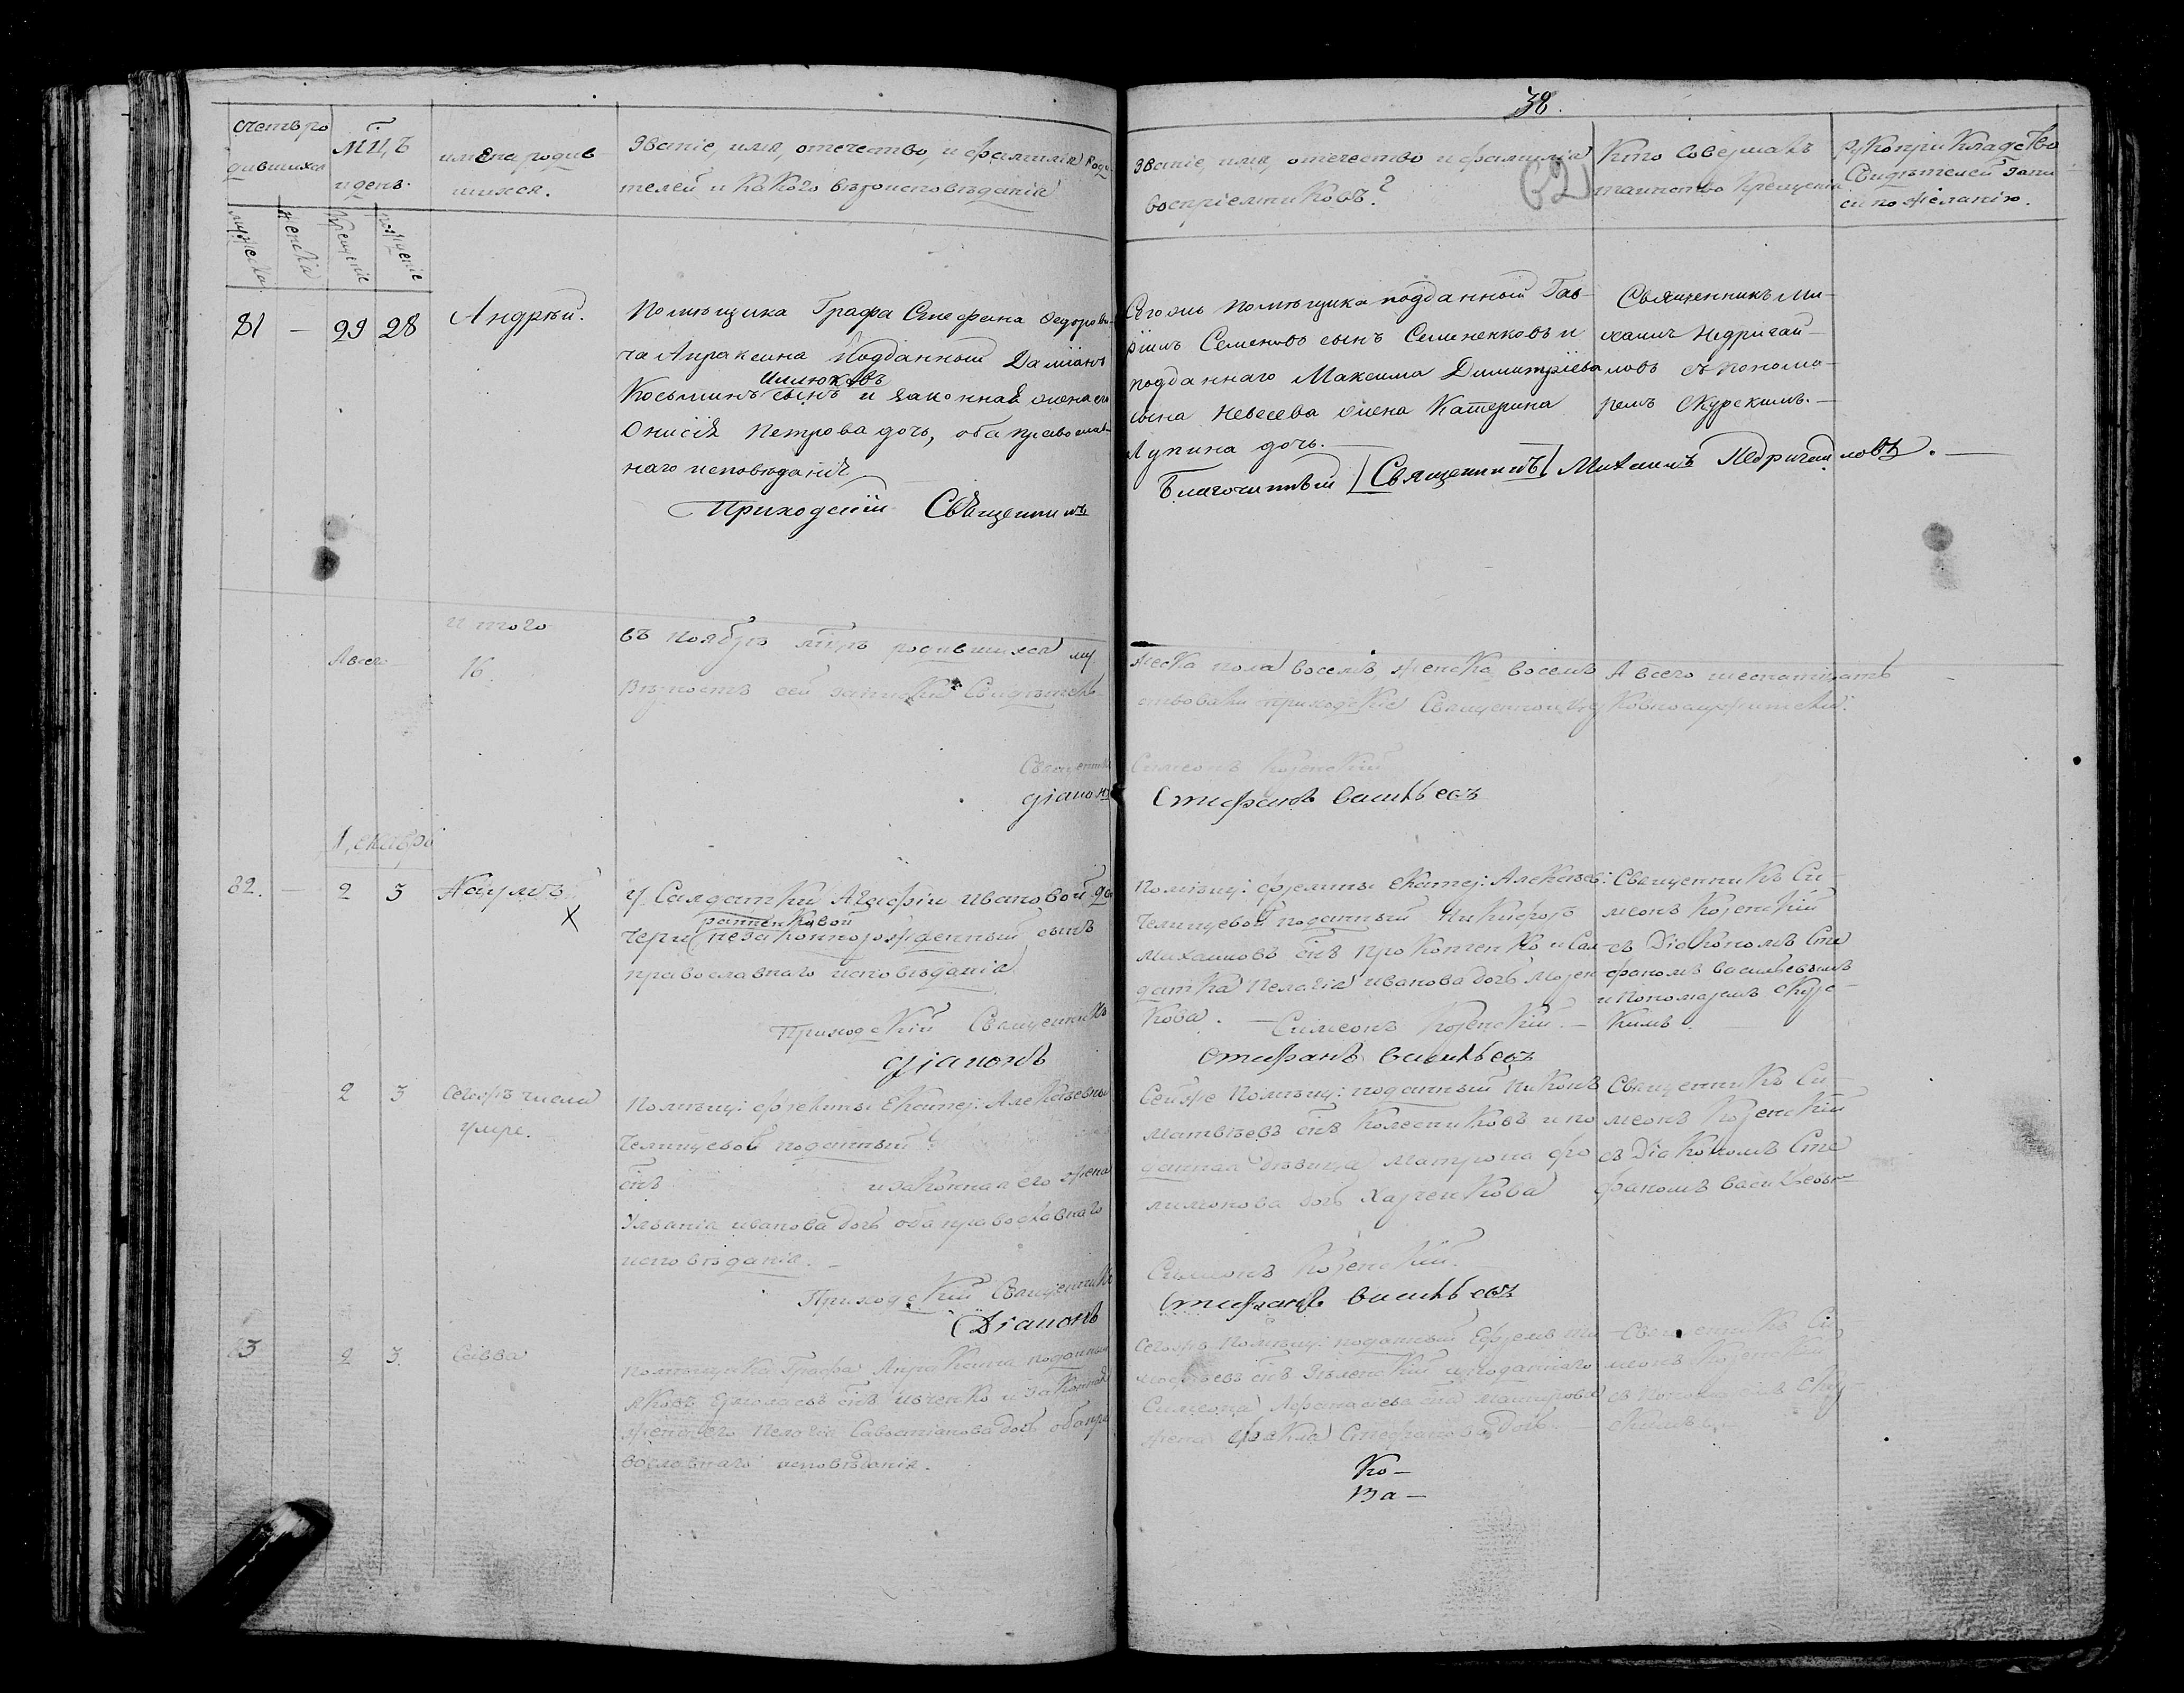 38.
счетъ ро
дившихся
мцъ
и день.
имена родив
шихся.
Званіе, имя, отечество, и фамилія роди
телей и какого вѣроисповѣданія
Званіе, имя, отечество и фамилія
воспріемниковъ?
32
Кто совершалъ
таинство крещенія
Рукоприкладство
свидѣтелей запи
си по желанію.
мужеска
женска
крещеніе
рожденіе
81 — 29 28
Андрѣй.
Помѣщика Графа Стефана Федорови-
ча Апраксина подданный Даміанъ
Косьминъ сынъ и законная жена его
Онисія Петрова дочь, оба православ-
наго исповѣданія
Приходскій Священникъ
Сегожъ помѣщика подданный Гав-
ріилъ Семеновъ сынъ Семененковъ и
подданнаго Максима Димитріева
сына жена Катерина
Лупина дочь.
Священникъ Ми-
хаилъ Недригай-
ловъ съ понома-
ремъ Скурскимъ.
Благочинный Священникъ Михаилъ Недригайловъ.
итого
въ ноябрѣ мцѣ родившихся му
жеска пола восемь, женска восемь А всего шеснатцать
А всего
16.
Вѣрность сей записки свидѣтель
ствовали приходскіе Священноцерковнослужители.
Священникъ
Симеонъ
діаконъ
Стефанъ Васильевъ
Декабрь
82. — 2 3
Наумъ
X
У Салдатки Агафіи Ивановой до
чери незаконнорожденный сынъ
православнаго исповѣданія
Приходскій Священникъ
діаконъ
Помѣщ: Екатер: Алексѣев:
Челищевой поданный Никифоръ
Михайловъ снъ Прокопенко и Сал-
датка Пелагія Иванова дочь
кова.
Симеонъ
Стефанъ Васильевъ
Священникъ Си-
меонъ
съ Діакономъ Сте
фаномъ Васильевымъ
и Пономаремъ Скурс-
кимъ.
2 3
Сегожъ числа
умре.
Помѣщ: Екатер: Алексѣевны
Челищевой поданный
снъ и законная его жена
Ульянія Иванова дочь оба православнаго
исповѣданія.
Приходскій Священникъ
Діаконъ
Сейже Помѣщ: поданный Никонъ
Матвѣевъ снъ Колесниковъ и по
данная дѣвица Матрона Фи
лимонова дочь Харченкова
Симеонъ
Стефанъ Васильевъ
Священникъ Си-
меонъ
съ Діакономъ Сте
фаномъ Васильевы
83 2 3.
Савва
Помѣщика Графа Апраксина поданный
Яковъ Ермолаевъ снъ Ивченко и законная
жена его Пелагія Савостіанова дочь оба пра
вославнаго исповѣданія.
Сегожъ Помѣщ: поданный Ефремъ Ти
мофѣевъ снъ и поданнаго
Симеона Афанасіева сна
жена Фекла Стефанова дочь.
Ко-
ва-
Священникъ Си
меонъ
съ Пономаремъ Скур
скимъ.